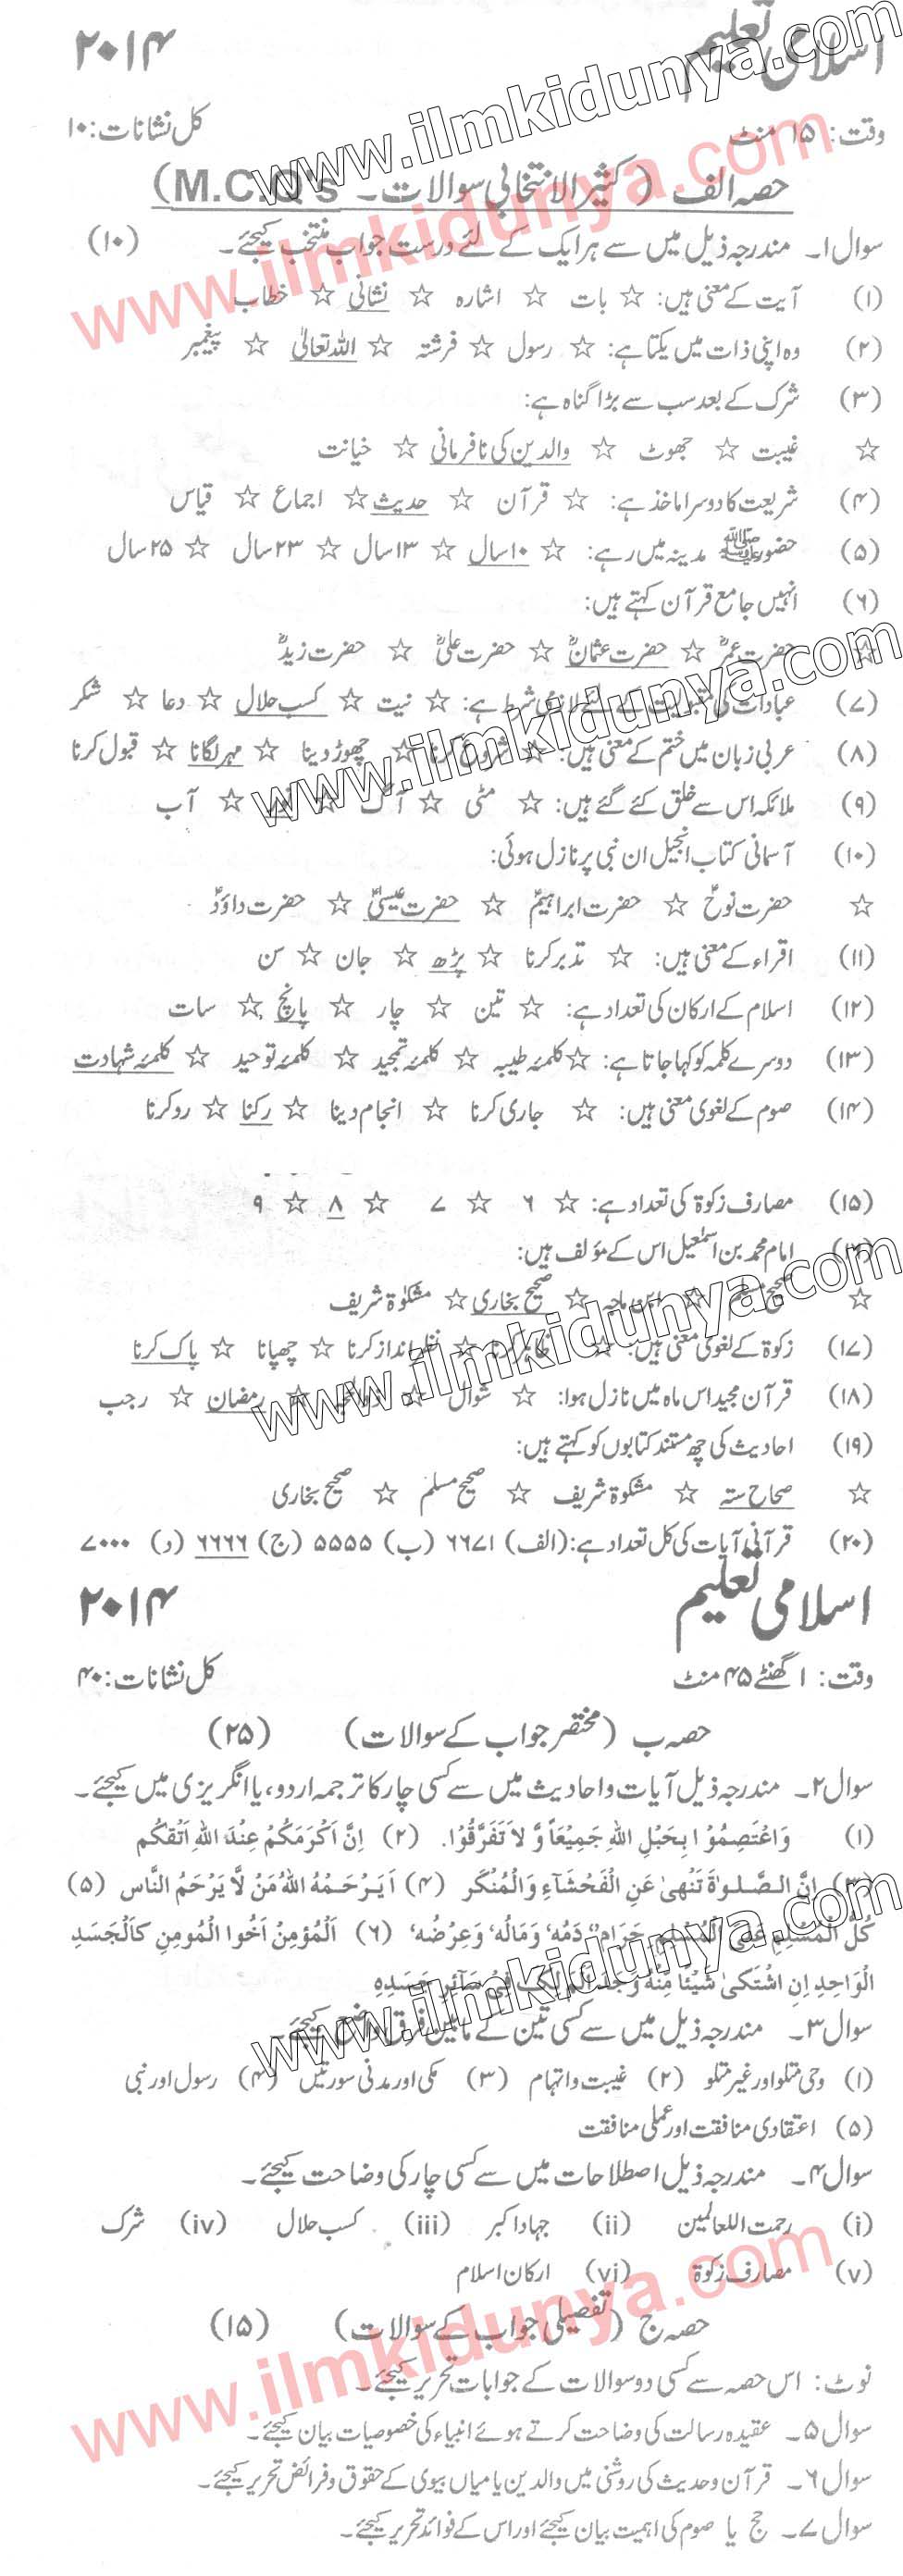 اسلامی تعلیم ۲۰۱۴
وقت: ۱۵ منٹ کل نشانات: ۱۰
حصہ الف (کثیر الانتخابی سوالات۔ M.C.Q's)
سوال ۱۔ مندرجہ ذیل میں سے ہر ایک کے لئے درست جواب منتخب کیجئے۔ (۱۰)
(۱) آیت کے معنی ہیں: ☆ بات ☆ اشارہ ☆ نشانی ☆ خطاب
(۲) وہ اپنی ذات میں یکتا ہے: ☆ رسول ☆ فرشتہ ☆ اللہ تعالیٰ ☆ پیغمبر
(۳) شرک کے بعد سب سے بڑا گناہ ہے:
☆ غیبت ☆ جھوٹ ☆ والدین کی نافرمانی ☆ خیانت
(۴) شریعت کا دوسرا ماخذ ہے: ☆ قرآن ☆ حدیث ☆ اجماع ☆ قیاس
(۵) حضور ﷺ مدینہ میں رہے: ☆ ۱۰ سال ☆ ۱۳ سال ☆ ۲۳ سال ☆ ۲۵ سال
(۶) انہیں جامع قرآن کہتے ہیں:
☆ حضرت عمرؓ ☆ حضرت عثمانؓ ☆ حضرت علیؓ ☆ حضرت زیدؓ
(۷) عبادات کی مقبولیت کے لئے لازمی شرط ہے: ☆ نیت ☆ کسب حلال ☆ دعا ☆ شکر
(۸) عربی زبان میں ختم کے معنی ہیں: ☆ شروع کرنا ☆ چھوڑ دینا ☆ مہر لگانا ☆ قبول کرنا
(۹) ملائکہ اس سے خلق کئے گئے ہیں: ☆ مٹی ☆ آگ ☆ نور ☆ آب
(۱۰) آسمانی کتاب انجیل ان نبی پر نازل ہوئی:
☆ حضرت نوحؑ ☆ حضرت ابراہیمؑ ☆ حضرت عیسیٰؑ ☆ حضرت داؤدؑ
(۱۱) اقراء کے معنی ہیں: ☆ تدبر کرنا ☆ پڑھ ☆ جان ☆ سن
(۱۲) اسلام کے ارکان کی تعداد ہے: ☆ تین ☆ چار ☆ پانچ ☆ سات
(۱۳) دوسرے کلمہ کو کہا جاتا ہے: ☆ کلمۂ طیبہ ☆ کلمۂ تمجید ☆ کلمۂ توحید ☆ کلمۂ شہادت
(۱۴) صوم کے لغوی معنی ہیں: ☆ جاری کرنا ☆ انجام دینا ☆ رکنا ☆ رو کرنا
(۱۵) مصارف زکوٰۃ کی تعداد ہے: ☆ ۶ ☆ ۷ ☆ ۸ ☆ ۹
(۱۶) امام محمد بن اسمٰعیل اس کے مؤلف ہیں:
☆ صحیح مسلم ☆ ابن ماجہ ☆ صحیح بخاری ☆ مشکوٰۃ شریف
(۱۷) زکوٰۃ کے لغوی معنی ہیں: ☆ ظاہر کرنا ☆ نظر انداز کرنا ☆ چھپانا ☆ پاک کرنا
(۱۸) قرآن مجید اس ماہ میں نازل ہوا: ☆ شوال ☆ ذوالحجہ ☆ رمضان ☆ رجب
(۱۹) احادیث کی چھ مستند کتابوں کو کہتے ہیں:
☆ صحاح ستہ ☆ مشکوٰۃ شریف ☆ صحیح مسلم ☆ صحیح بخاری
(۲۰) قرآنی آیات کی کل تعداد ہے: (الف) ۶۶۷۱ (ب) ۵۵۵۵ (ج) ۶۶۶۶ (د) ۷۰۰۰
اسلامی تعلیم ۲۰۱۴
وقت: ۱ گھنٹے ۴۵ منٹ کل نشانات: ۴۰
حصہ ب (مختصر جواب کے سوالات) (۲۵)
سوال ۲۔ مندرجہ ذیل آیات و احادیث میں سے کسی چار کا ترجمہ اردو، یا انگریزی میں کیجئے۔
(۱) وَاعْتَصِمُوْا بِحَبْلِ اللهِ جَمِيْعَاً وَّ لَا تَفَرَّقُوْا. (۲) اِنَّ اَكْرَمَكُمْ عِنْدَ اللهِ اَتْقٰكُم
(۳) اِنَّ الصَّلٰوةَ تَنْهىٰ عَنِ الْفَحْشَآءِ وَالْمُنْكَر (۴) اَيَرْحَمْهُ اللهُ مَنْ لَّا يَرْحَمُ النَّاس (۵)
كُلُّ الْمُسْلِمِ عَلَى الْمُسْلِمِ حَرَام'' دَمُه' وَمَالُه' وَعِرْضُه' (۶) اَلْمُؤمِنُ اَخُوا الْمُومِنِ كالْجَسَدِ
الْوَاحِدِ اِنِ اشْتَكىٰ شَيْئًا مِنْهُ وَجَدَ اَلَمَ ذٰلِكَ فِىْ سَآئِرِ جَسَدِهٖ
سوال ۳۔ مندرجہ ذیل میں سے کسی تین کے مابین فرق واضح کیجئے۔
(۱) وحی متلو اور غیر متلو (۲) غیبت و اتہام (۳) مکی اور مدنی سورتیں (۴) رسول اور نبی
(۵) اعتقادی منافقت اور عملی منافقت
سوال ۴۔ مندرجہ ذیل اصطلاحات میں سے کسی چار کی وضاحت کیجئے۔
(i) رحمت اللعالمین (ii) جہاد اکبر (iii) کسب حلال (iv) شرک
(v) مصارف زکوٰۃ (vi) ارکان اسلام
حصہ ج (تفصیلی جواب کے سوالات) (۱۵)
نوٹ: اس حصہ سے کسی دو سوالات کے جوابات تحریر کیجئے۔
سوال ۵۔ عقیدہ رسالت کی وضاحت کرتے ہوئے انبیاء کی خصوصیات بیان کیجئے۔
سوال ۶۔ قرآن و حدیث کی روشنی میں والدین یا میاں بیوی کے حقوق و فرائض تحریر کیجئے۔
سوال ۷۔ حج یا صوم کی اہمیت بیان کیجئے اور اس کے فوائد تحریر کیجئے۔
www.ilmkidunya.com
www.ilmkidunya.com
www.ilmkidunya.com
www.ilmkidunya.com
www.ilmkidunya.com
www.ilmkidunya.com